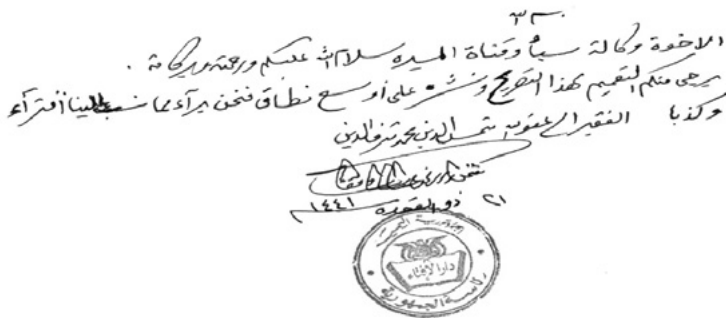 بسم الله
الاخوة وكالة سبأ وقناة المسيره سلام الله عليكم ورحمته وبركاته .
يرجى منكم التعميم لهذا التصريح ونشره على أوسع نطاق فنحن برآء مما نسب إلينا أفتراء
وكذبا الفقير إلى عفو الله شمس الدين محمد شرف الدين
٢١ ذو القعدة ١٤٤١
الجمهورية اليمنية
دار الإفتاء
رئاسة الجمهورية